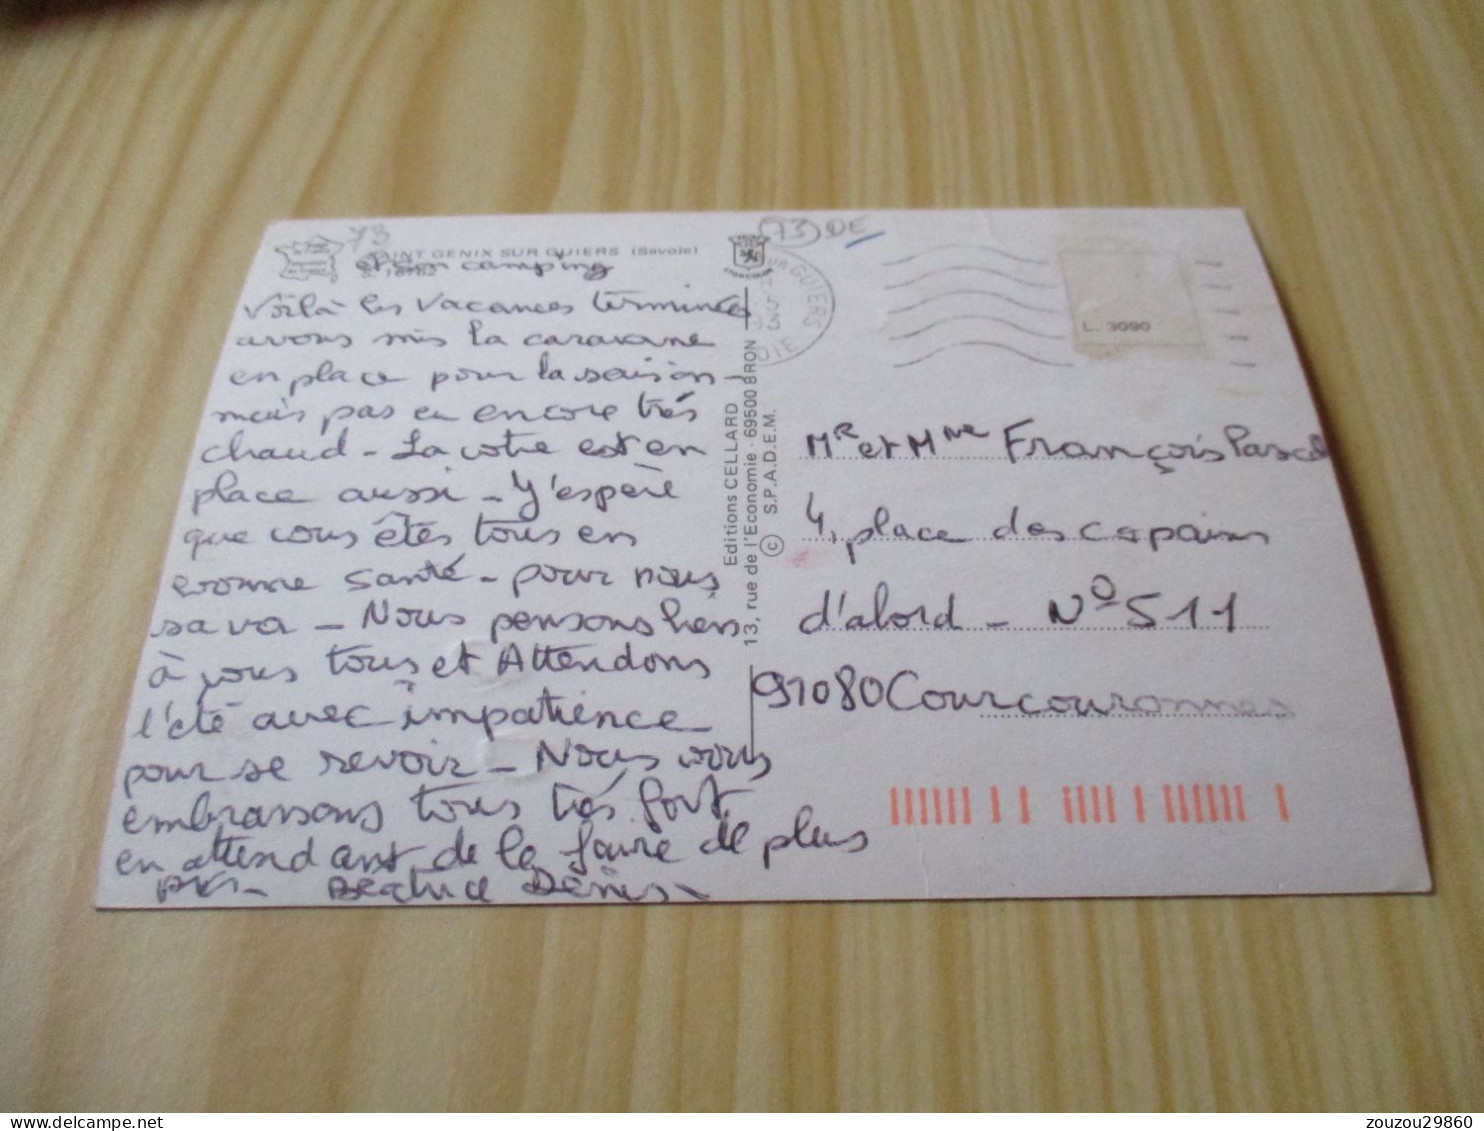 73
SAINT GENIX SUR GUIERS (Savoie)
et son camping
Voilà les vacances terminées
avons mis la caravane
en place pour la saison -
mais pas eu encore très
chaud - La votre est en
place aussi - J'espère
que vous êtes tous en
bonne santé - pour nous
sa va - Nous pensons bien
à vous tous et Attendons
l'été avec impatience
pour se revoir - Nous vous
embrassons tous très fort,
en attendant de le faire de plus
près - Béatrice Denis -
Editions CELLARD
13, rue de l'Economie - 69500 BRON
© S.P.A.D.E.M.
73 DE
SUR GUIERS
L. 3090
Mr et Mme François Pascal
4, place des copains
d'abord - N° 511
91080 Courcouronnes
zouzou29860